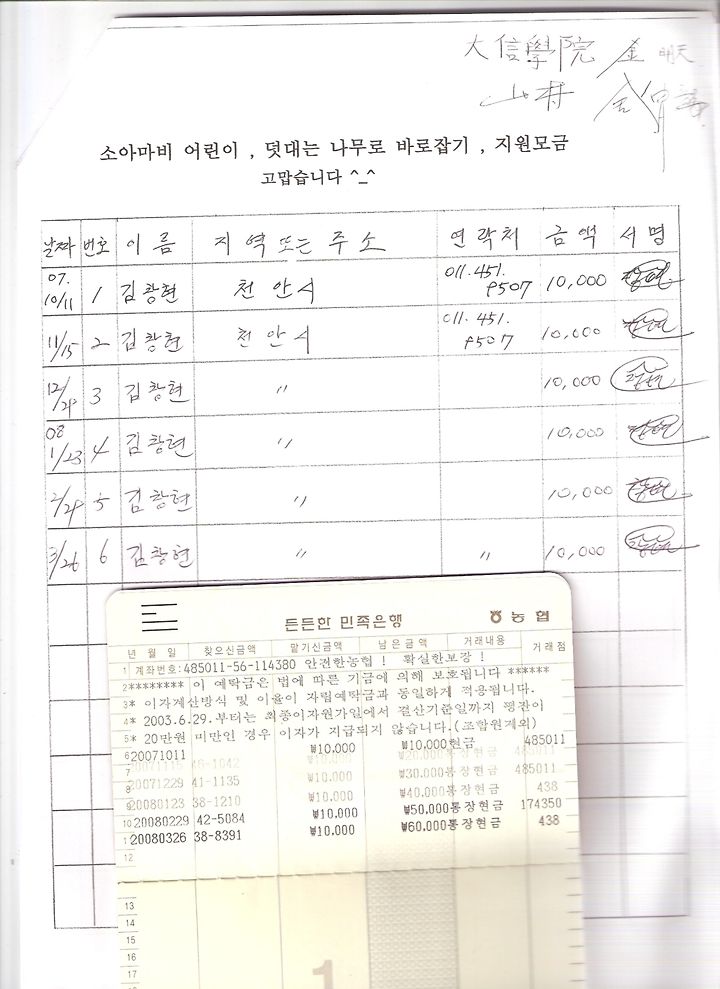 大信學院 金 明天
山村 金
소아마비 어린이 , 덧대는 나무로 바로잡기 , 지원모금
고맙습니다 ^_^
날짜 번호 이름 지역 또는 주소 연락처 금액 서명
07. 10/11 1 김창현 천안시 011.451.9507 10,000 창현
11/15 2 김창현 천안시 011.451.9507 10,000 창현
12/29 3 김창현 〃 10,000 창현
08 1/23 4 김창현 〃 10,000 창현
2/29 5 김창현 〃 10,000 창현
3/26 6 김창현 〃 〃 10,000 창현
든든한 민족은행 농협
년 월 일 찾으신금액 맡기신금액 남은금액 거래내용 거래점
1 계좌번호:485011-56-114380 안전한농협 ! 확실한보장 !
2******** 이 예탁금은 법에 따른 기금에 의해 보호됩니다 ******
3* 이자계산방식 및 이율이 자립예탁금과 동일하게 적용됩니다.
4* 2003.6.29.부터는 최종이자원가일에서 결산기준일까지 평잔이
5* 20만원 미만인 경우 이자가 지급되지 않습니다.(조합원제외)
6 20071011 ₩10,000 ₩10,000현금 485011
7 20071115 46-1042 ₩10,000 ₩20,000통장현금 485011
8 20071229 41-1135 ₩10,000 ₩30,000통장현금 485011
9 20080123 38-1210 ₩10,000 ₩40,000통장현금 438
10 20080229 42-5084 ₩10,000 ₩50,000통장현금 174350
1 20080326 38-8391 ₩10,000 ₩60,000통장현금 438
12
13
14
15
16
17
1